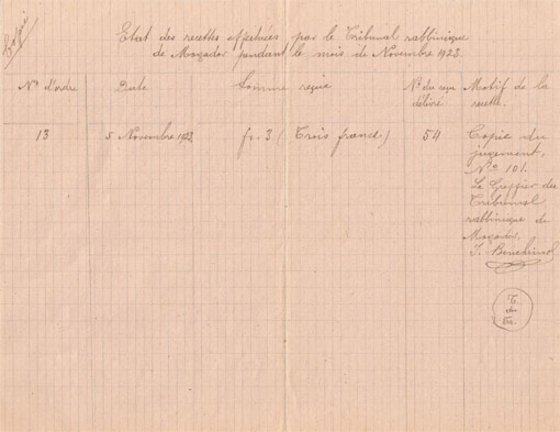 Copie
Etat des recettes effectuées par le Tribunal rabbinique
de Mogador pendant le mois de Novembre 1923.
N° d'ordre
Date
Somme reçue
N° du reçu
délivré
Motif de la
recette.
13
5 Novembre 1923.
fr. 3 ( Trois francs)
54
Copie du
jugement,
N° 101.
Le Greffier du
Tribunal
rabbinique de
Mogador.
J. Benchimol
T.
du
Gr.